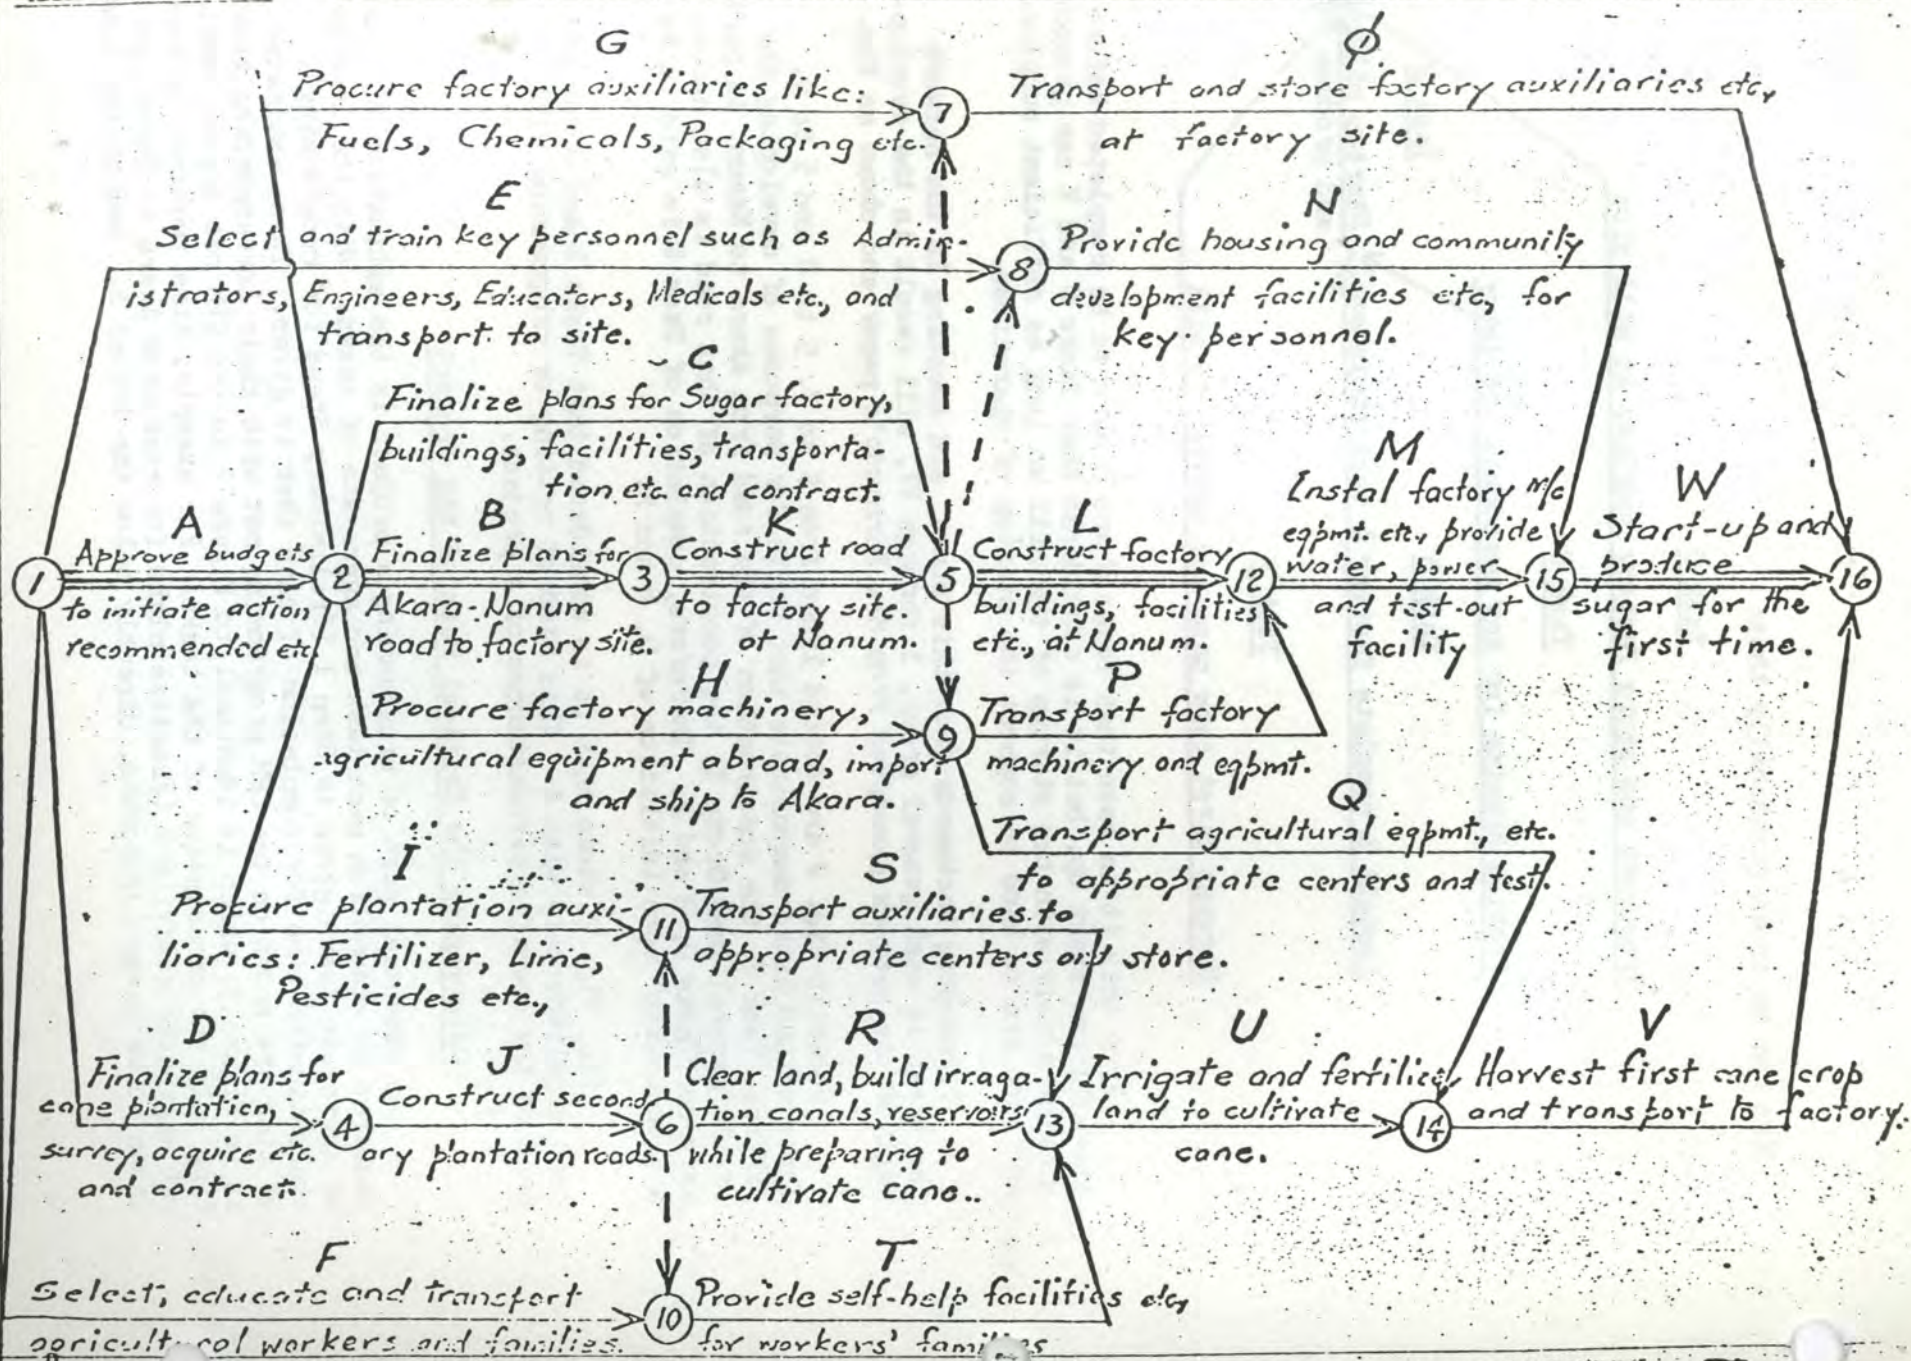 G
Procure factory auxiliaries like:
Fuels, Chemicals, Packaging etc.
7
Ø
Transport and store factory auxiliaries etc,
at factory site.
E
Select and train key personnel such as Admin-
istrators, Engineers, Educators, Medicals etc., and
transport to site.
8
N
Provide housing and community
development facilities etc, for
key personnel.
C
Finalize plans for Sugar factory,
buildings, facilities, transporta-
tion etc. and contract.
1
A
Approve budgets
to initiate action
recommended etc.
2
B
Finalize plans for
Akara-Nanum
road to factory site.
3
K
Construct road
to factory site.
at Nanum.
5
L
Construct factory
buildings, facilities
etc., at Nanum.
12
M
Instal factory m/c
eqpmt. etc., provide
water, power
and test-out
facility
15
W
Start-up and
produce
sugar for the
first time.
16
H
Procure factory machinery,
agricultural equipment abroad, import
and ship to Akara.
9
P
Transport factory
machinery and eqpmt.
Q
Transport agricultural eqpmt., etc.
to appropriate centers and test.
I
Procure plantation auxi-
liaries: Fertilizer, Lime,
Pesticides etc.,
11
S
Transport auxiliaries to
appropriate centers and store.
D
Finalize plans for
cane plantation,
survey, acquire etc.
and contract.
4
J
Construct second
ary plantation roads.
6
R
Clear land, build irraga-
tion canals, reservoirs
while preparing to
cultivate cane..
13
U
Irrigate and fertilize
land to cultivate
cane.
14
V
Harvest first cane crop
and transport to factory.
F
Select, educate and transport
agricultural workers and families.
10
T
Provide self-help facilities etc,
for workers' families